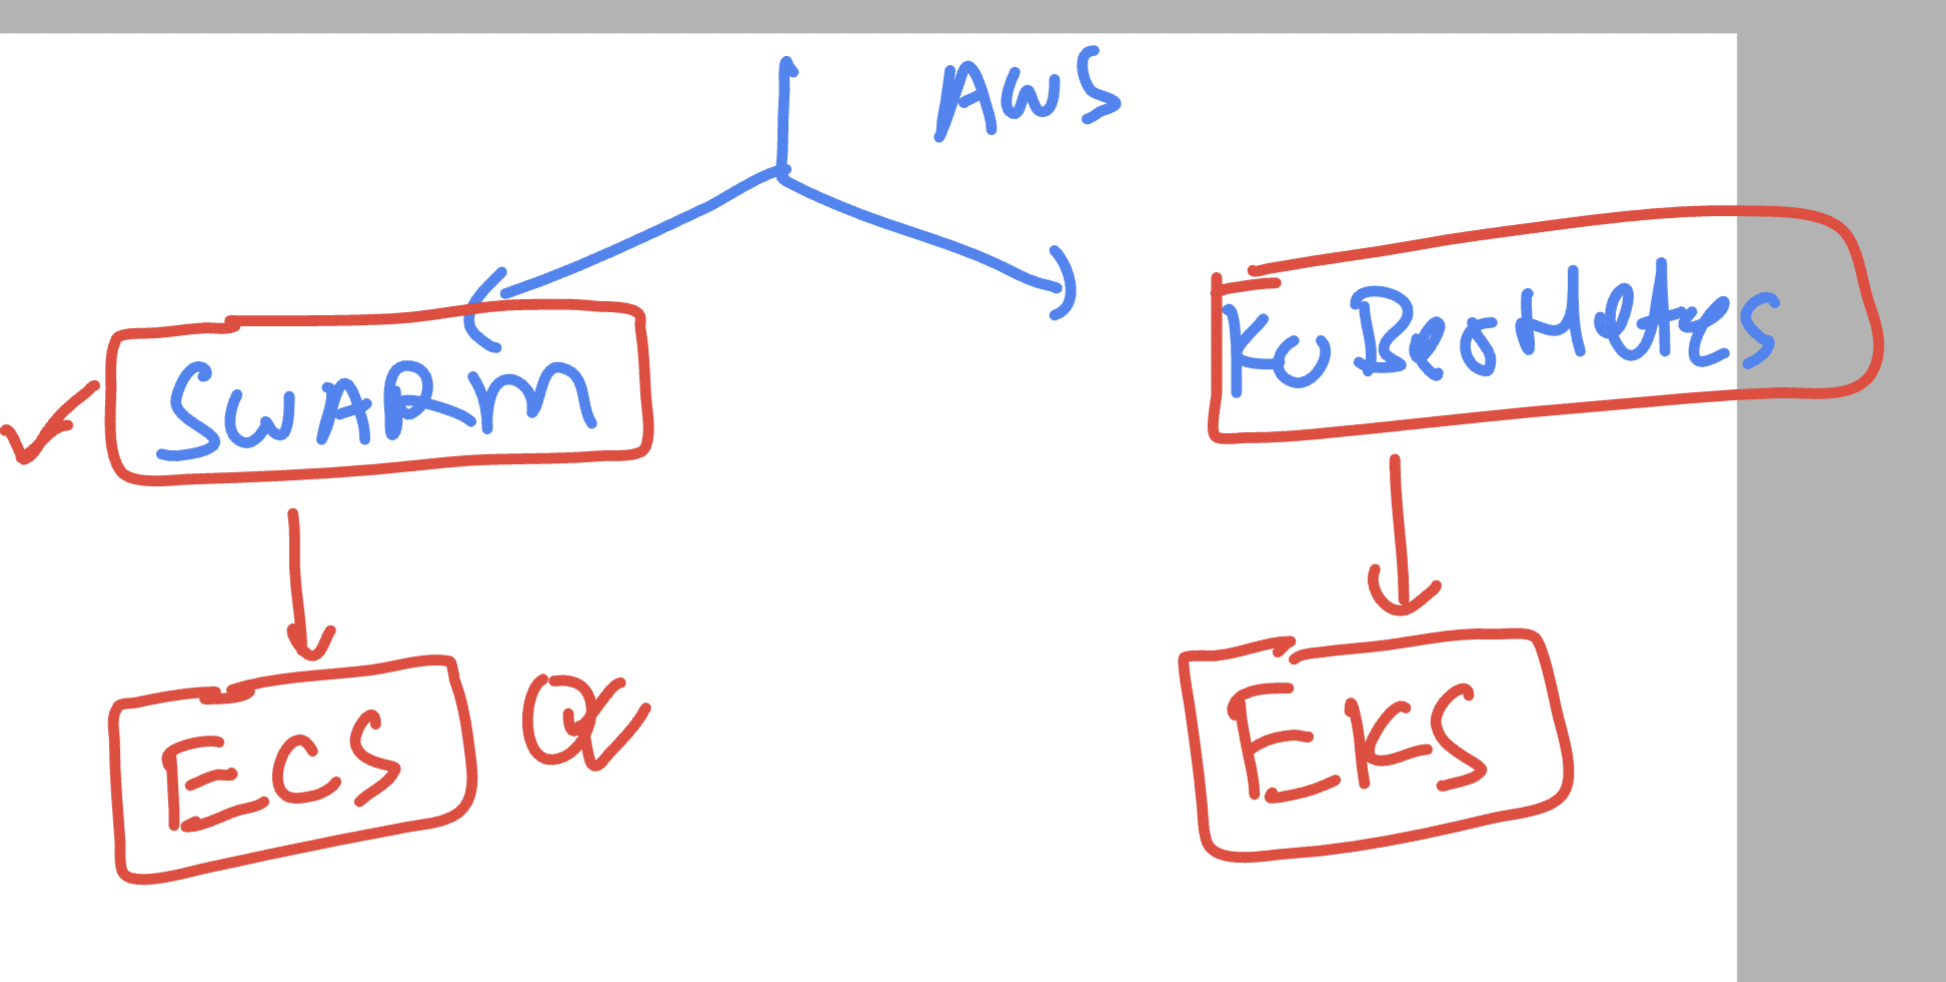 AWS
SWARM
KUBERNETES
ECS
EKS